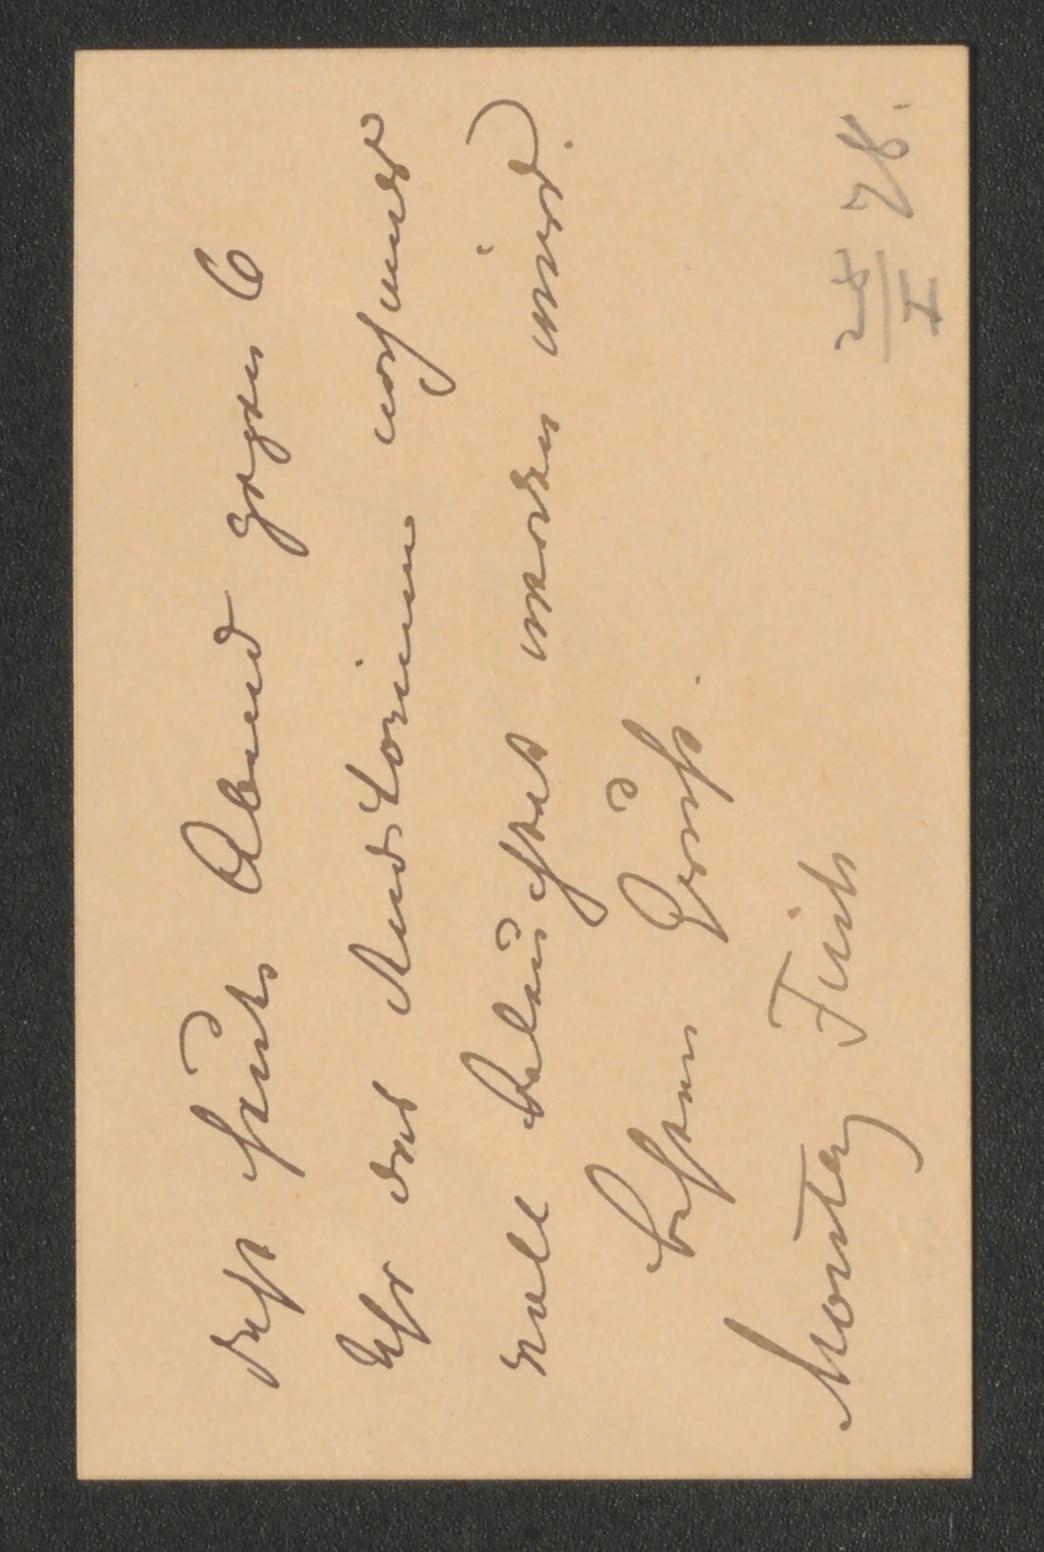 daß heute Abend gegen 6
Uhr das Auditorium
voll beleuchtet werden wird.
Besten Gruß.
Montag Früh
24/I 78.